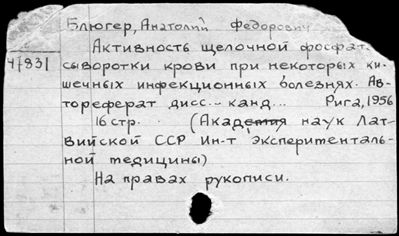 Блюгер, Анатолий Федорович
Активность щелочной фосфат.
4/831 сыворотки крови при некоторых ки-
шечных инфекционных болезнях. Ав-
тореферат дисс.. канд... Рига, 1956
16 стр. (Академия наук Лат-
вийской ССР Ин-т Эксперименталь-
ной медицины)
На правах рукописи.